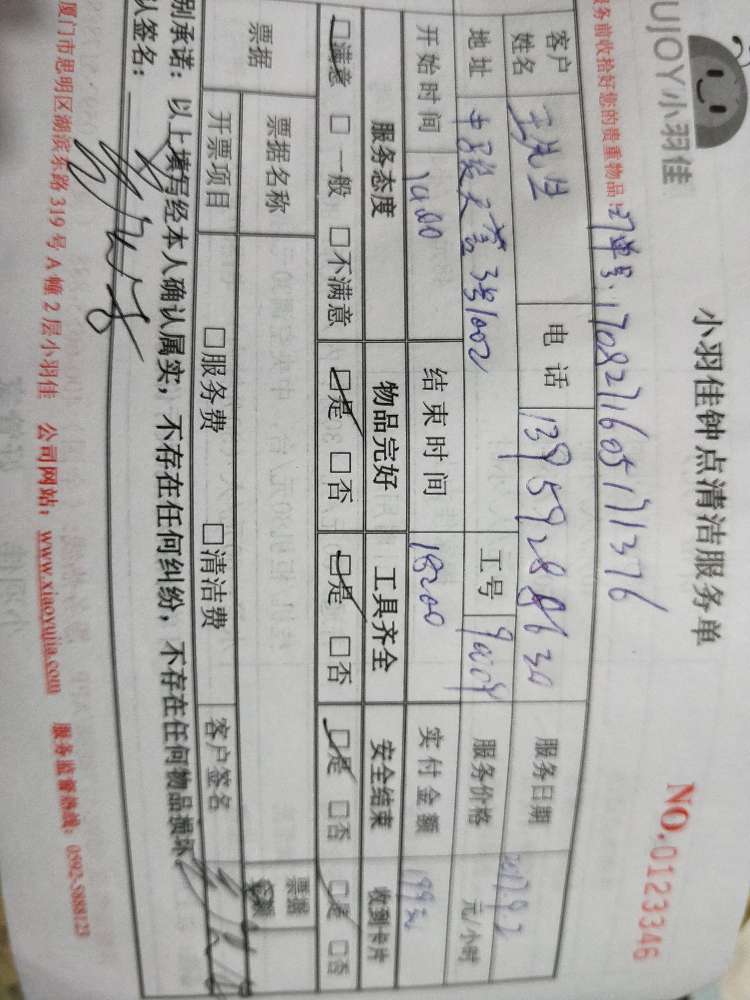 UJOY小羽佳
小羽佳钟点清洁服务单
NO.0123346
务前收拾好您的贵重物品!
1708271605171376
客户姓名 王先生 电话 13959288630 服务日期 2017.9.2
地址 3号1002 工号 服务价格 元/小时
开始时间 14:00 结束时间 18:00 实付金额 199元
服务态度 物品完好 工具齐全 安全结束 收到卡片
□满意 □一般 □不满意 □是 □否 □是 □否 □是 □否 □是 □否
票据 票据名称 票据金额
开票项目 □服务费 □清洁费 客户签名
别承诺:以上填写经本人确认属实,不存在任何纠纷,不存在任何物品损坏。
认签名:
厦门市思明区湖滨东路319号A幢2层小羽佳 公司网站:www.xiaoyujia.com 服务监督热线:0592-5888123